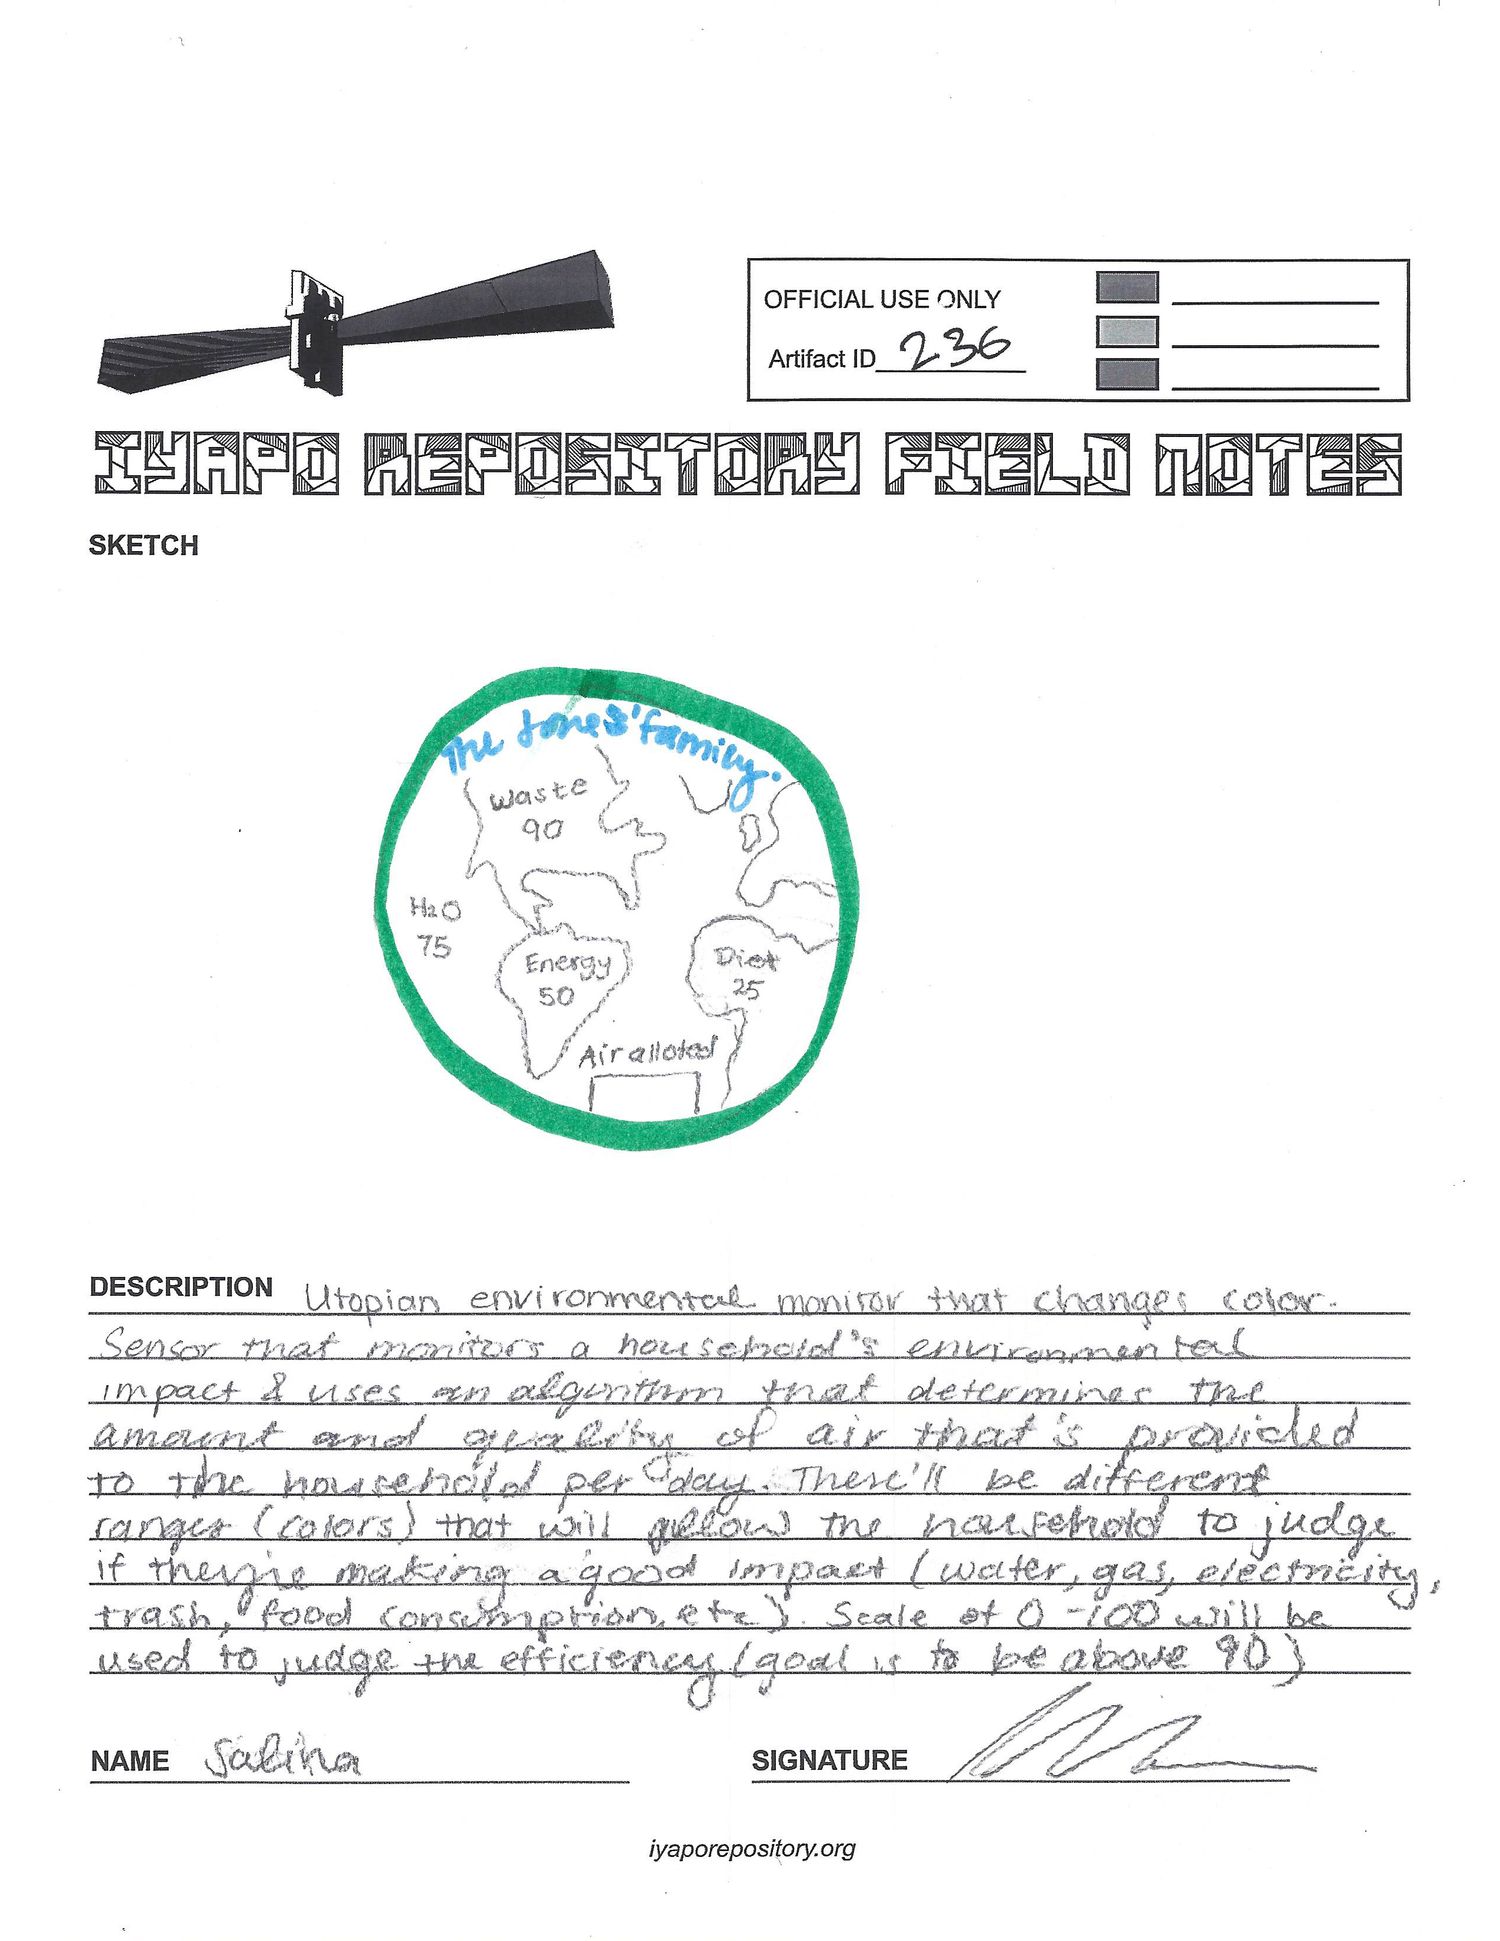 OFFICIAL USE ONLY
Artifact ID 236
IYAPO REPOSITORY FIELD NOTES
SKETCH
The Jones' family.
Waste
90
H2O
75
Energy
50
Diet
25
Air alloted
DESCRIPTION Utopian environmental monitor that changes color.
Sensor that monitors a household's environmental
impact & uses an algorithm that determines the
amount and quality of air that's provided
to the household per day. There'll be different
ranges (colors) that will allow the household to judge
if they're making a good impact (water, gas, electricity,
trash, food consumption, etc). Scale of 0-100 will be
used to judge the efficiency (goal is to be above 90)
NAME Salina
SIGNATURE
iyaporepository.org